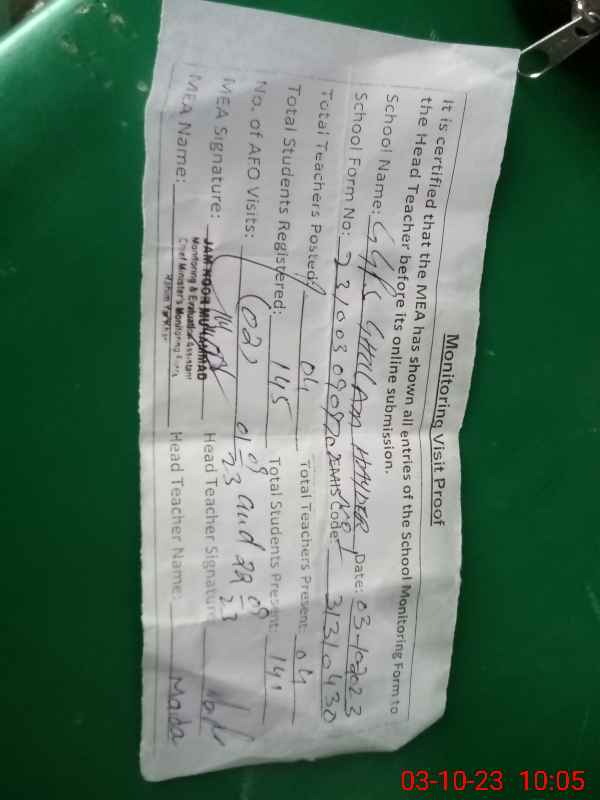 Monitoring Visit Proof
It is certified that the MEA has shown all entries of the School Monitoring Form to
the Head Teacher before its online submission.
School Name: GGPS GHULAM HAYDER Date: 03-10-2023
School Form No: EMIS Code: 31310430
Total Teachers Posted: 04 Total Teachers Present: 04
Total Students Registered: 145 Total Students Present: 141
No. of AEO Visits: (02) 01-09-23 and 22-09-23
MEA Signature: Head Teacher Signature:
JAM NOOR MUHAMMAD
Monitoring & Evaluation Assistant
Chief Minister's Monitoring Force
Rahim Yar Khan
MEA Name: Head Teacher Name:
03-10-23 10:05